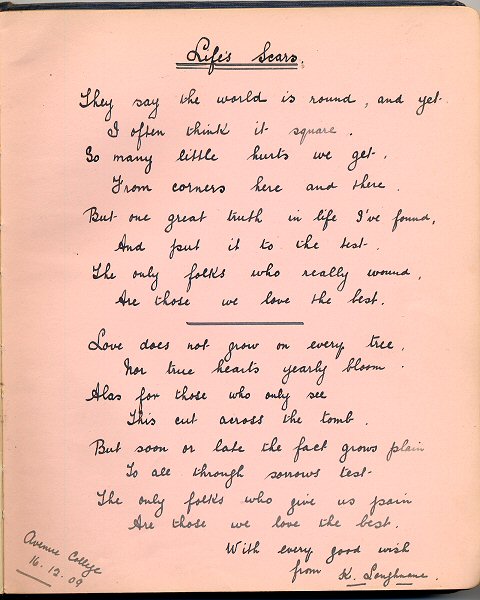 Life's Scars.
They say the world is round, and yet
I often think it square.
So many little hurts we get.
From corners here and there.
But one great truth in life I've found,
And put it to the test.
The only folks who really wound,
Are those we love the best.
Love does not grow on every tree.
Nor true hearts yearly bloom.
Alas for those who only see
This cut across the tomb.
But soon or late the fact grows plain
To all through sorrows test
The only folks who give us pain
Are those we love the best.
With every good wish
from K. Loughnane.
Avenue College
16.12.09